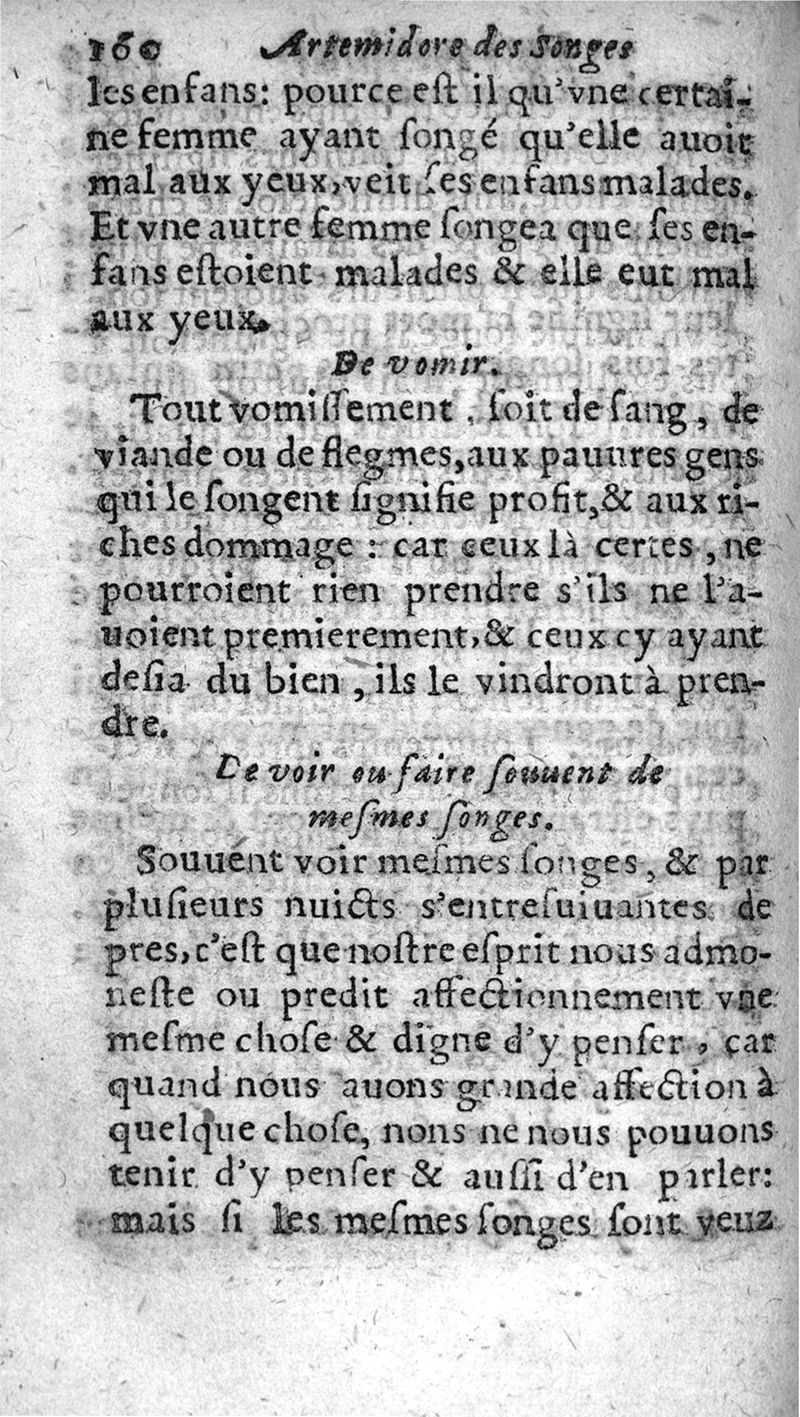 160 Artemidore des Songes
les enfans: pource est il qu'vne certai-
ne femme ayant ſongé qu'elle auoit
mal aux yeux, veit ſes enfans malades.
Et vne autre femme ſongea que ſes en-
fans eſtoient malades & elle eut mal
aux yeux.
De vomir.
Tout vomiſſement, ſoit de ſang, de
viande ou de flegmes, aux pauures gens
qui le ſongent ſignifie profit, & aux ri-
ches dommage : car ceux là certes, ne
pourroient rien prendre s'ils ne l'a-
uoient premierement, & ceux cy ayant
deſia du bien, ils le vindront à pren-
dre.
De voir ou faire ſouuent de
meſmes ſonges.
Souuent voir meſmes ſonges, & par
pluſieurs nuicts s'entreſuiuantes de
pres, c'eſt que noſtre eſprit nous admo-
neſte ou predit affectionnement vne
meſme choſe & digne d'y penſer, car
quand nous auons grande affection à
quelque choſe, nons ne nous pouuons
tenir d'y penſer & auſſi d'en parler:
mais ſi les meſmes ſonges ſont veuz